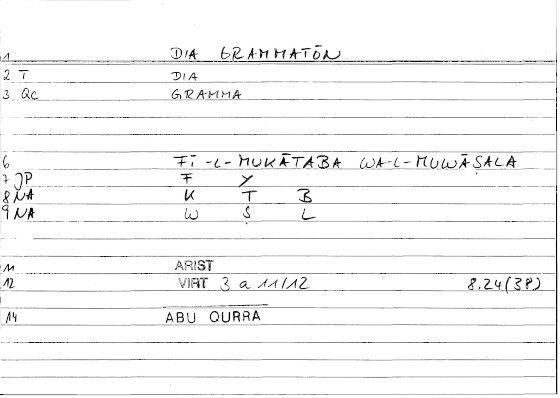 1 DIA GRAMMATŌN
2 T DIA
3 QC GRAMMA
6 FĪ-L-MUKĀTABA WA-L-MUWĀṢALA
7 JP F Y
8 NA K T B
9 NA W Ṣ L
11 ARIST
12 VIRT 3 a 11/12 8.24(38)
14 ABU QURRA